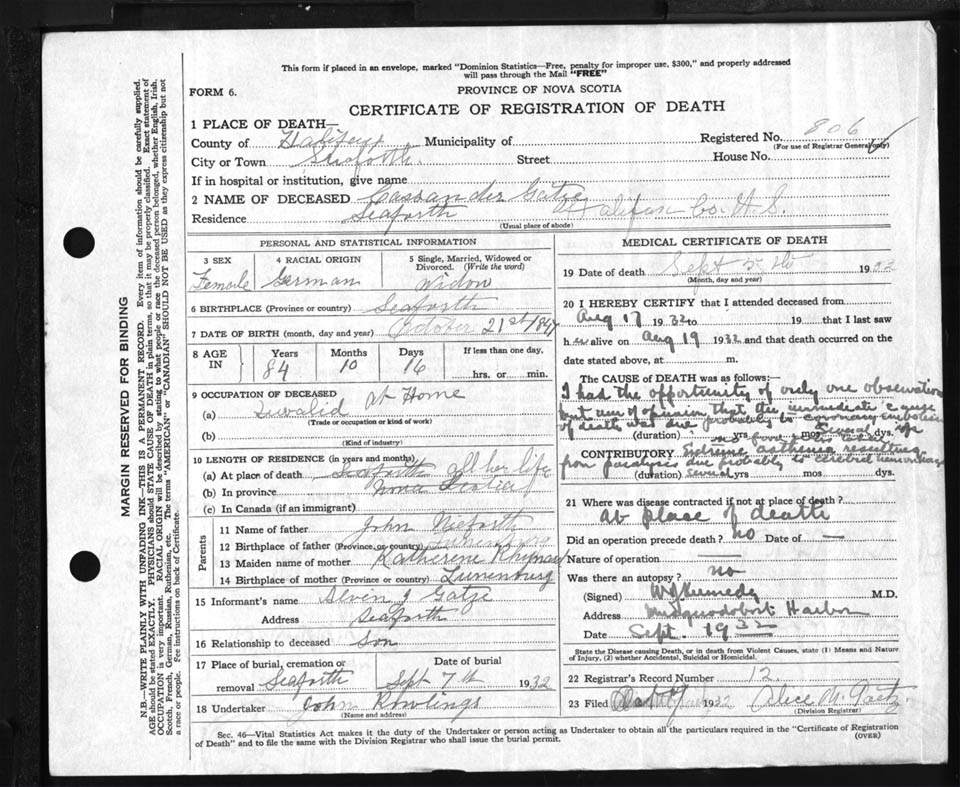 This form if placed in an envelope, marked "Dominion Statistics—Free, penalty for improper use, $300," and properly addressed
will pass through the Mail "FREE"
FORM 6.
PROVINCE OF NOVA SCOTIA
CERTIFICATE OF REGISTRATION OF DEATH
1 PLACE OF DEATH—
County of Halifax Municipality of Registered No. 806
(For use of Registrar General only)
City or Town Seaforth. Street House No.
If in hospital or institution, give name
2 NAME OF DECEASED Cassander Gatze
Residence Seaforth Halifax Co. N.S.
(Usual place of abode)
PERSONAL AND STATISTICAL INFORMATION
3 SEX Female
4 RACIAL ORIGIN German
5 Single, Married, Widowed or Divorced. (Write the word) Widow
6 BIRTHPLACE (Province or country) Seaforth
7 DATE OF BIRTH (month, day and year) October 21st 1847
8 AGE IN Years 84 Months 10 Days 16 If less than one day, hrs. or min.
9 OCCUPATION OF DECEASED
(a) Invalid at Home
(Trade or occupation or kind of work)
(b)
(Kind of industry)
10 LENGTH OF RESIDENCE (in years and months)
(a) At place of death Seaforth All her life
(b) In province Nova Scotia
(c) In Canada (if an immigrant)
Parents
11 Name of father John Neiforth
12 Birthplace of father (Province or country) Lunenburg
13 Maiden name of mother Katherene
14 Birthplace of mother (Province or country) Lunenburg
15 Informant's name Alven J Gatze
Address Seaforth
16 Relationship to deceased Son
17 Place of burial, cremation or removal Seaforth
Date of burial Sept 7th 1932
18 Undertaker John Rowlings
(Name and address)
MEDICAL CERTIFICATE OF DEATH
19 Date of death Sept 5th 1932
(Month, day and year)
20 I HEREBY CERTIFY that I attended deceased from
Aug 17 1932 to 19 that I last saw
h er alive on Aug 19 1932 and that death occurred on the
date stated above, at m.
The CAUSE OF DEATH was as follows:—
I had the opportunity of only one observation
but am of opinion that the immediate cause
of death was due probably to coronary embolism
(duration) yrs mos dys.
CONTRIBUTORY resulting
from paralysis due probably cerebral hemorrhage
(duration) Several yrs mos dys.
21 Where was disease contracted if not at place of death?
at place of death
Did an operation precede death? no Date of —
Nature of operation —
Was there an autopsy? no
(Signed) Kennedy M.D.
Address Musquodoboit Harbor
Date Sept. 1932
State the Disease causing Death, or in death from Violent Causes, state (1) Means and
Nature of Injury, (2) whether Accidental, Suicidal or Homicidal.
22 Registrar's Record Number 12.
23 Filed 1932 Alice M. Gaetz
(Division Registrar)
Sec. 46—Vital Statistics Act makes it the duty of the Undertaker or person acting as Undertaker to obtain all the particulars required in the "Certificate of Registration
of Death" and to file the same with the Division Registrar who shall issue the burial permit.
(OVER)
MARGIN RESERVED FOR BINDING
N.B.—WRITE PLAINLY WITH UNFADING INK—THIS IS A PERMANENT RECORD. Every item of information should be carefully supplied.
AGE should be stated EXACTLY. PHYSICIANS should STATE CAUSE OF DEATH in plain terms, so that it may be properly classified. Exact statement of
OCCUPATION is very important. RACIAL ORIGIN will be described by stating to what people or race the deceased person belonged, whether English, Irish,
Scotch, French, German, Russian, Ruthenian, etc. The terms "AMERICAN" or "CANADIAN" SHOULD NOT BE USED as they express citizenship but not
a race or people. Fee instructions on back of Certificate.